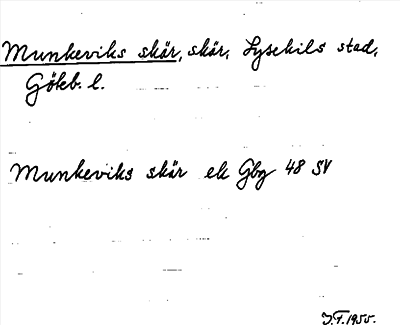 Munkeviks skär, skär, Lysekils stad,
Götb. l.
Munkeviks skär ek Gbg 48 SV
J.F. 1955.